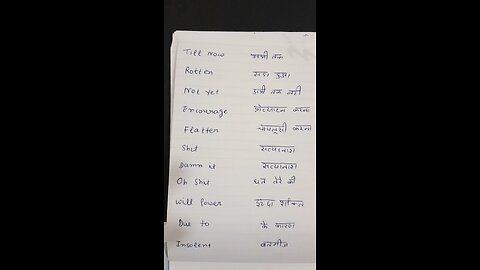 Till Now अभी तक
Rotten सड़ा हुआ
Not yet अभी तक नहीं
Encourage प्रोत्साहन करना
Flatter चापलूसी करना
Shit सत्यानाश
Damn it सत्यानाश
Oh Shit धत्त तेरे की
Will Power इच्छा शक्ति
Due to के कारण
Insolent बदतमीज